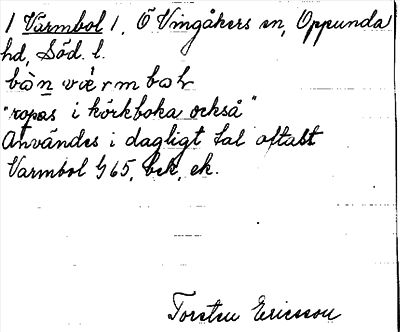 1 Varmbol 1, Ö Vingåkers sn, Oppunda
hd, Söd. l.
"ropas i körkboka också"
Användes i dagligt tal oftast
Varmbol 1/65, bek, ek.
Torsten Ericsson